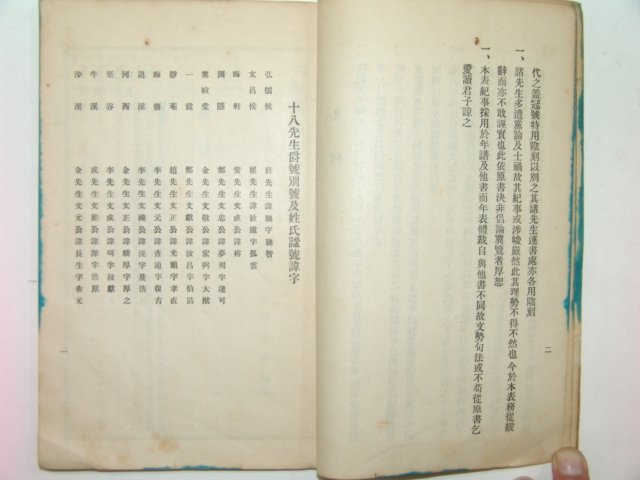 代之蓋冠號特用陰刻以別之其諸先生連書處亦各用陰刻
一、諸先生多遭黨論及士禍故其紀事或涉峻嚴然此其理勢不得不然也今於本表務從緩
辭而亦不敢誣實也此依原書決非倡論冀覽者厚恕
一、本表紀事採用於年譜及他書而年表體裁自與他書不同故文勢句法或不苟從原書乞
愛讀君子諒之
二
十八先生爵號別號及姓氏諡號諱字
弘儒侯 薛先生諱聰字聰智
文昌侯 崔先生諱致遠字孤雲
晦軒 安先生文成公諱裕
圃隱 鄭先生文忠公諱夢周字達可
寒暄堂 金先生文敬公諱宏弼字大猷
一蠹 鄭先生文獻公諱汝昌字伯勗
靜菴 趙先生文正公諱光祖字孝直
晦齋 李先生文元公諱彥迪字復古
退溪 李先生文純公諱滉字景浩
河西 金先生文正公諱麟厚字厚之
栗谷 李先生文成公諱珥字叔獻
牛溪 成先生文簡公諱渾字浩原
沙溪 金先生文元公諱長生字希元
一